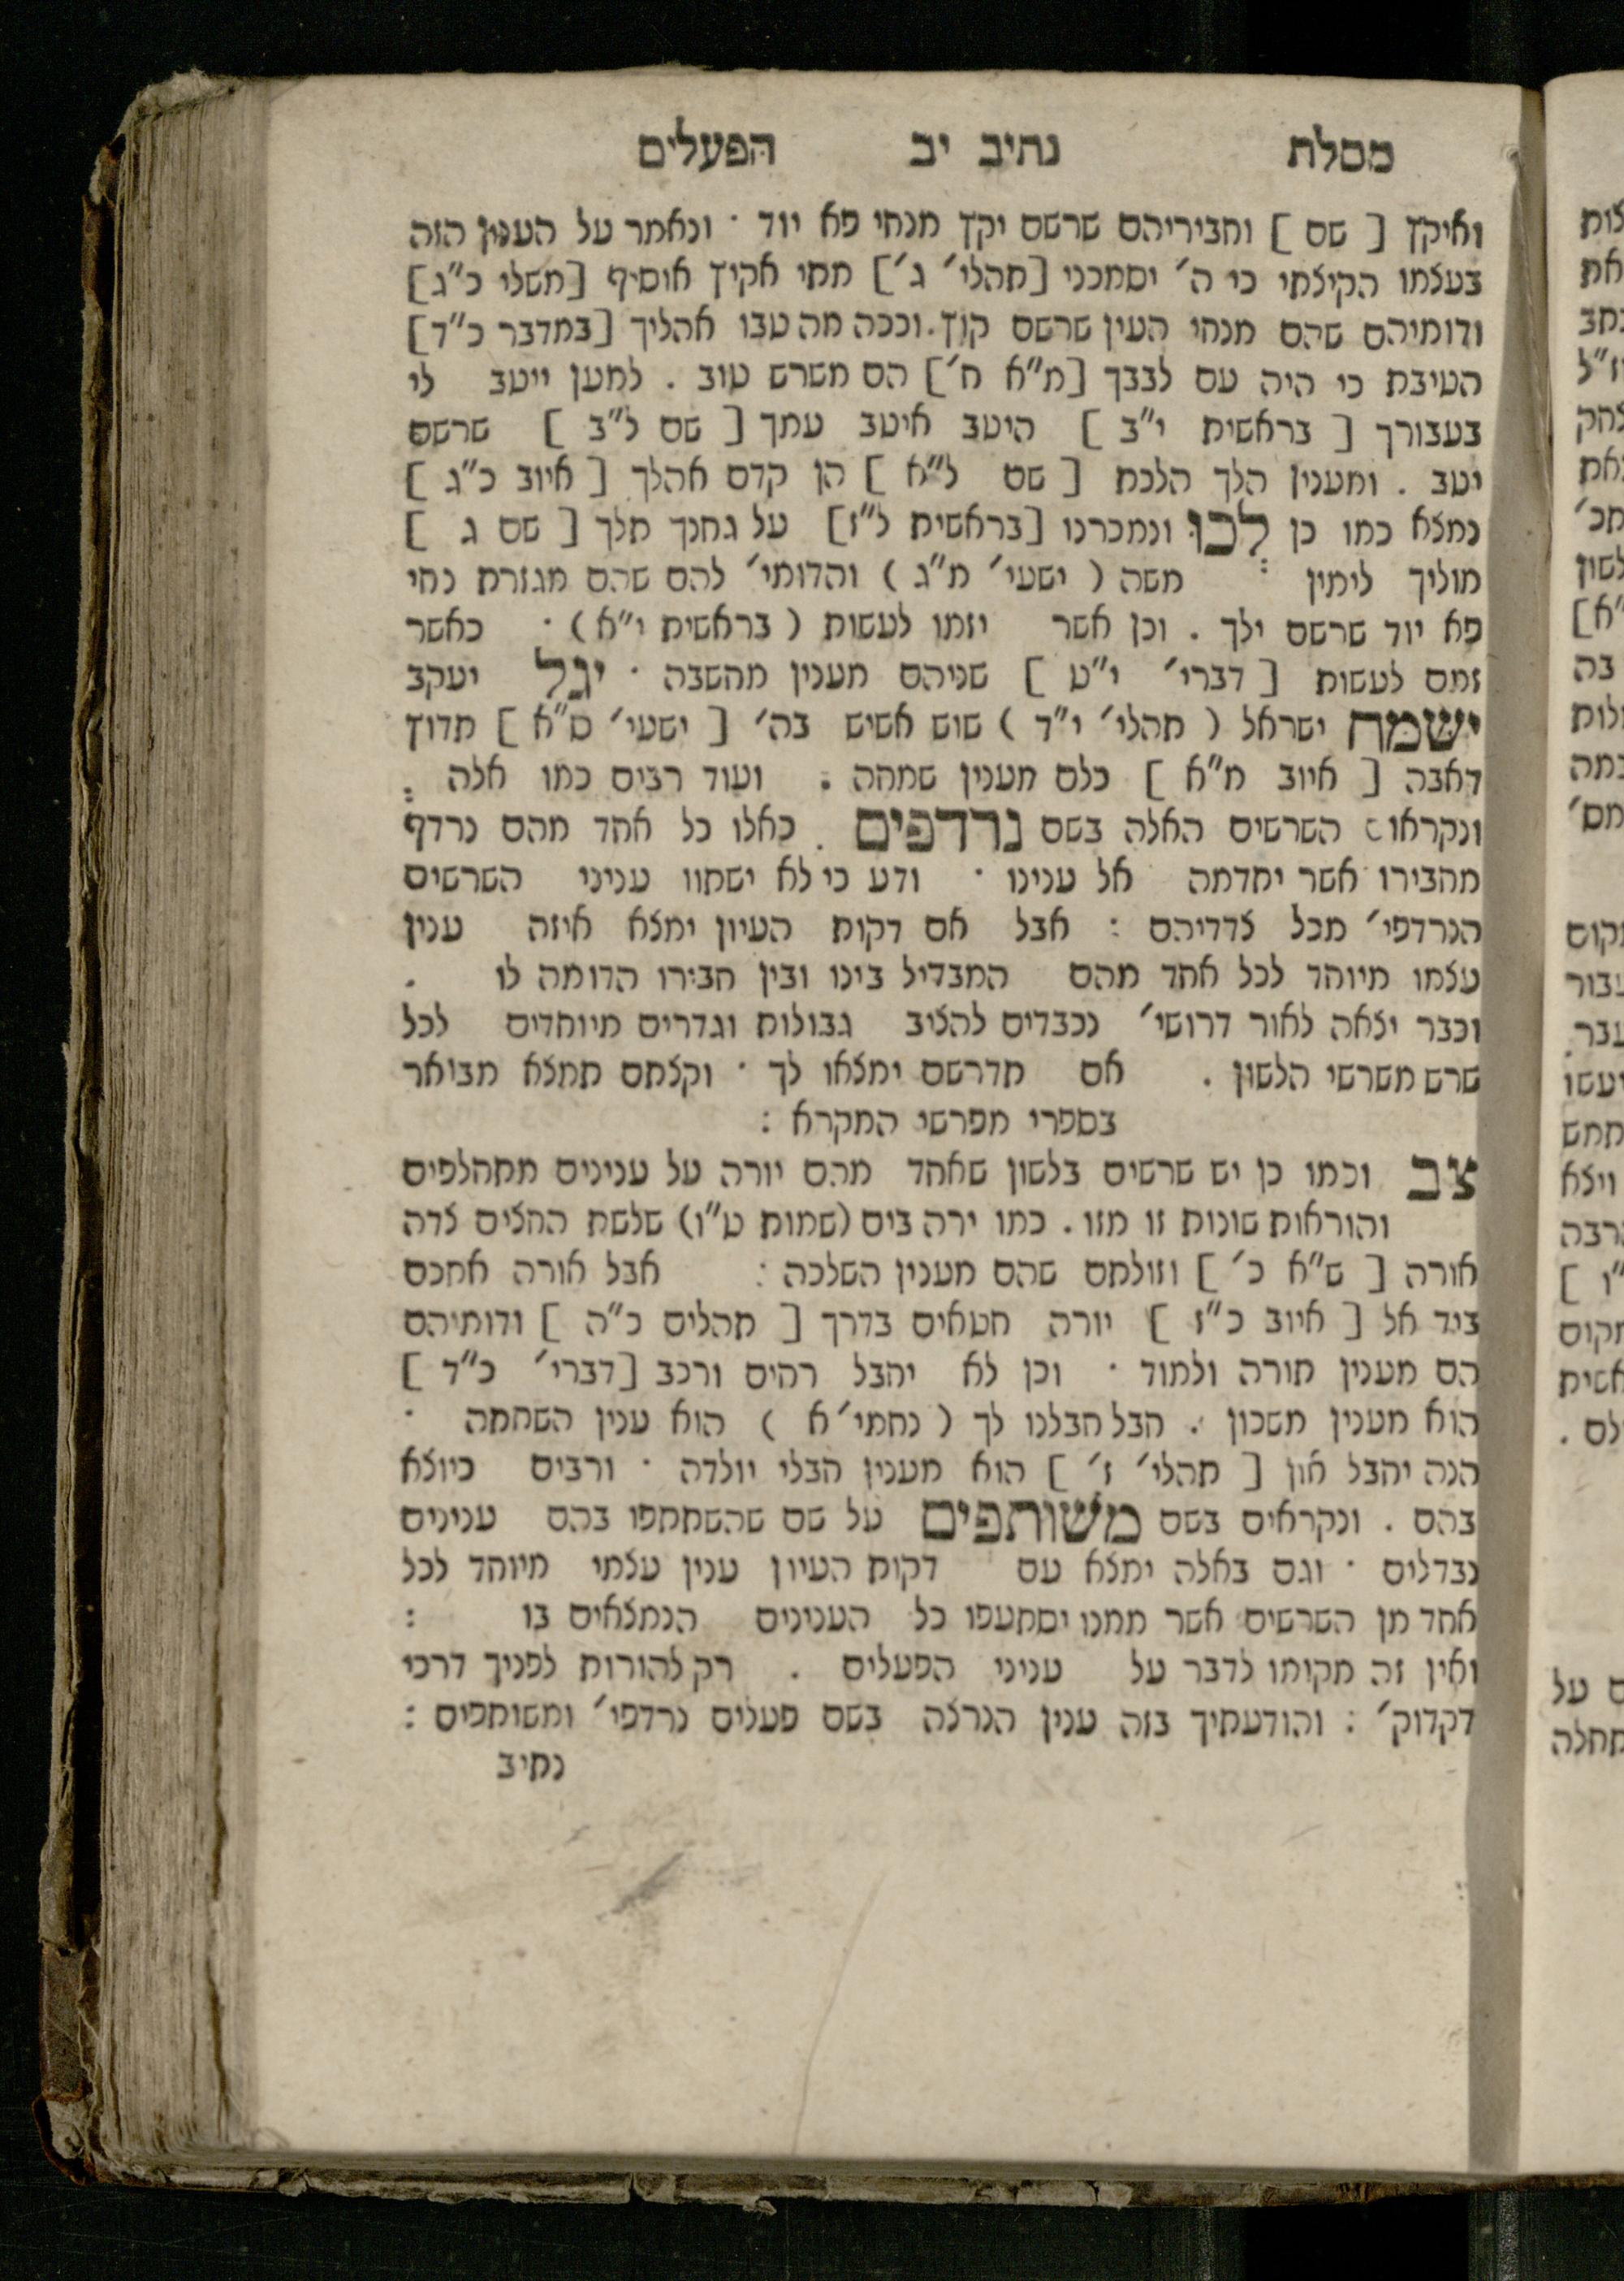 מסלת נתיב יב הפעלים
ואיקץ [ שם ] וחביריהם שרשם יקץ מנחי פא יוד · ונאמר על הענין הזה
בעצמו הקיצתי כי ה׳ יסמכני [תהלי׳ ג׳] מתי אקיץ אוסיף [משלי כ״ג]
ודומיהם שהם מנחי העין שרשם קוץ . וככה מה טבו אהליך [במדבר כ״ד]
הטיבת כי היה עם לבבך [מ״א ח׳] הם משרש טוב . למען ייטב לי
בעבורך [ בראשית י״ב ] היטב איטב עמך [ שם ל״ב ] שרשם
יטב . ומענין הלך הלכת [ שם ל״א ] הן קדם אהלך [ איוב כ״ג ]
נמצא כמו כן לְכוּ ונמכרנו [בראשית ל״ז] על גחנך תלך [ שם ג ]
מוליך לימין משה ( ישעי׳ מ״ג ) והדומי׳ להם שהם מגזרת נחי
פא יוד שרשם ילך . וכן אשר יזמו לעשות ( בראשית י״א ) · כאשר
זמם לעשות [ דברי׳ י״ט ] שניהם מענין מחשבה · יגל יעקב
ישמח ישראל ( תהלי׳ י״ד ) שוש אשיש בה׳ [ ישעי׳ ס״א ] תדוץ
דאבה [ איוב מ״א ] כלם מענין שמחה : ועוד רבים כמו אלה :
ונקראו השרשים האלה בשם נרדפים . כאלו כל אחד מהם נרדף
מחבירו אשר יתדמה אל ענינו · ודע כי לא ישתוו עניני השרשים
הנרדפי׳ מכל צדדיהם : אבל אם דקות העיון ימצא איזה ענין
עצמו מיוחד לכל אחד מהם המבדיל בינו ובין חבירו הדומה לו .
וכבר יצאה לאור דרושי׳ נכבדים להציב גבולות וגדרים מיוחדים לכל
שרש משרשי הלשון . אם תדרשם ימצאו לך · וקצתם תמצא מבואר
בספרי מפרשי המקרא :
צב וכמו כן יש שרשים בלשון שאחד מהם יורה על ענינים מתחלפים
והוראות שונות זו מזו . כמו ירה בים (שמות ט״ו) שלשת החצים צדה
אורה [ ש״א כ׳ ] וזולתם שהם מענין השלכה : אבל אורה אתכם
ביד אל [ איוב כ״ז ] יורה חטאים בדרך [ תהלים כ״ה ] ודומיהם
הם מענין תורה ולמוד · וכן לא יחבל רחים ורכב [דברי׳ כ״ד ]
הוא מענין משכון . חבל חבלנו לך ( נחמי׳ א ) הוא ענין השחתה ·
הנה יחבל און [ תהלי׳ ז׳ ] הוא מענין חבלי יולדה · ורבים כיוצא
בהם . ונקראים בשם משותפים על שם שהשתתפו בהם ענינים
נבדלים · וגם באלה ימצא עם דקות העיון ענין עצמי מיוחד לכל
אחד מן השרשים אשר ממנו יסתעפו כל הענינים הנמצאים בו :
ואין זה מקומו לדבר על עניני הפעלים . רק להורות לפניך דרכי
דקדוק׳ : והודעתיך בזה ענין הנרצה בשם פעלים נרדפי׳ ומשותפים :
נתיב